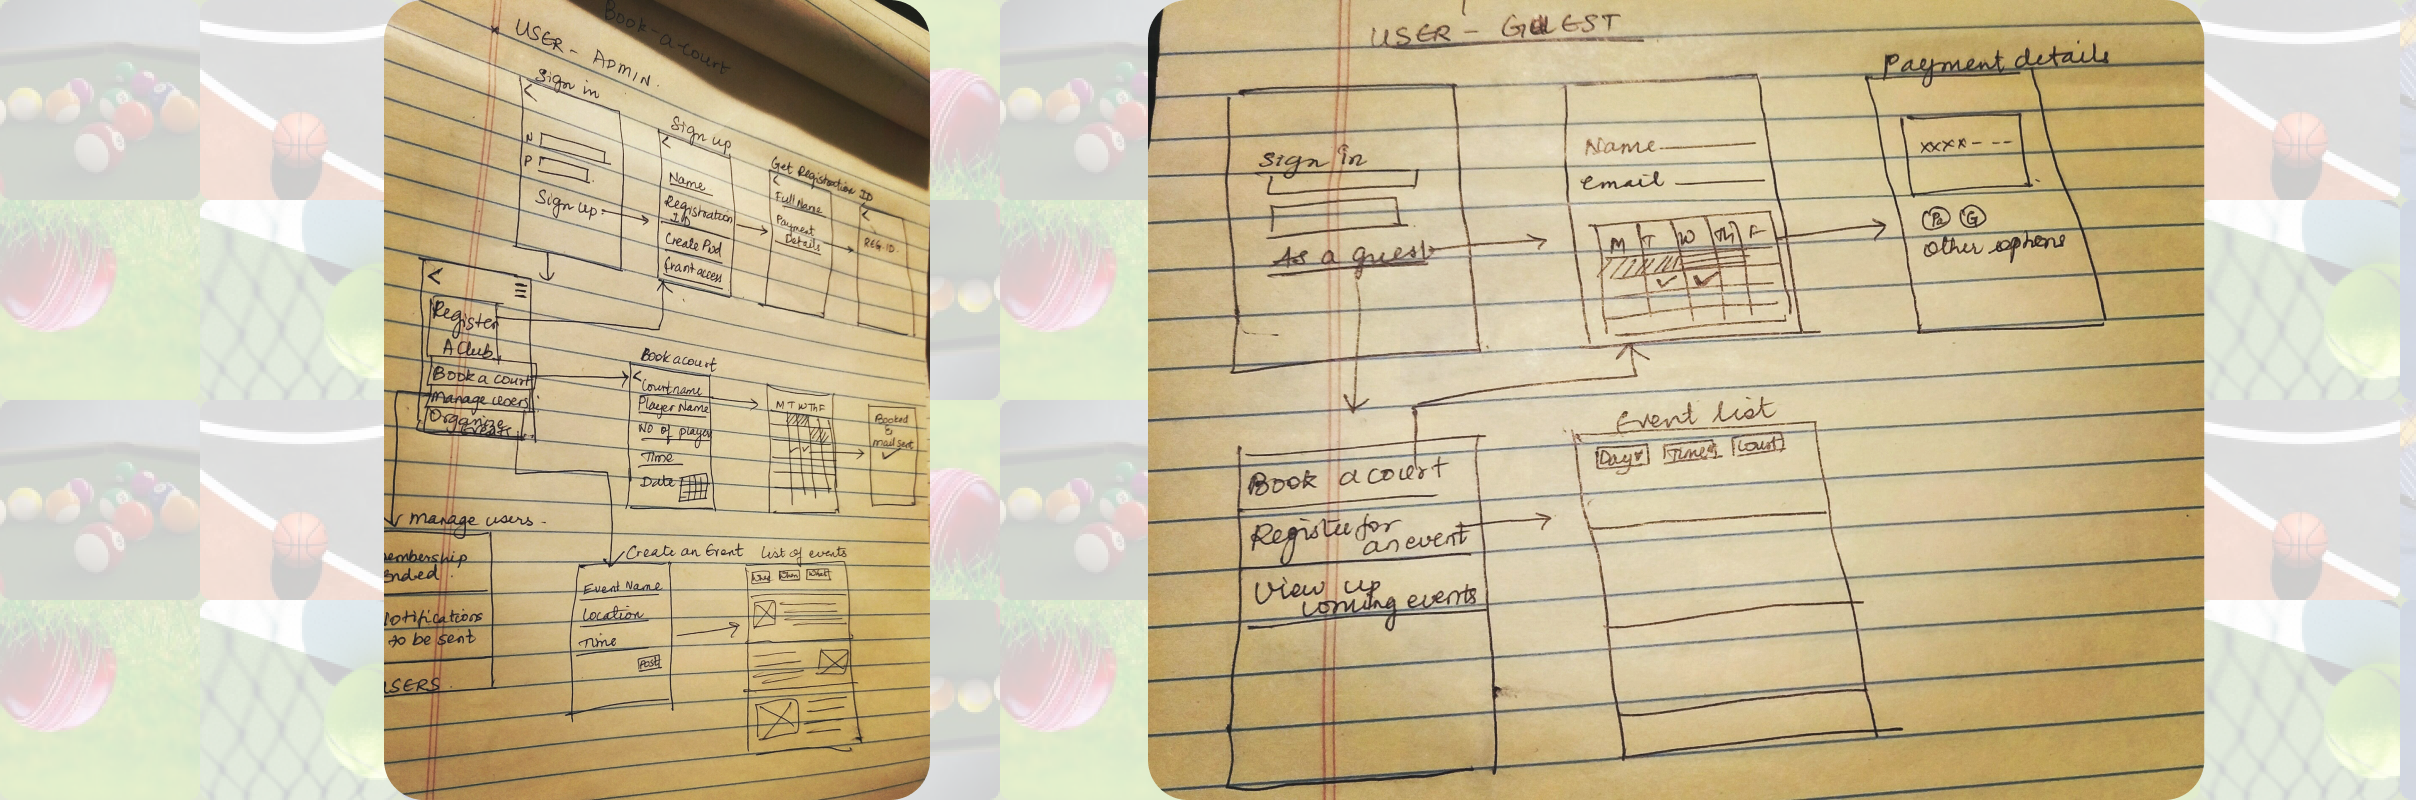 Book-a-court
USER - ADMIN.
Sign in
N
P
Sign up
Sign up
Name
Registration
ID
Create Pwd
Grant access
Get Registration ID
Full Name
Payment
Details
REG.ID.
Register
A Club
Book a court
Manage users
Organize
Events
Book a court
Court name
Player Name
No of player
Time
Date
M T W Th F
Booked
&
mail sent
Manage users -
embership
Ended.
Notifications
to be sent
USERS
Create an Event
Event Name
Location
Time
POST
List of events
When
What
USER - GUEST
Sign in
As a guest
Name
email
M T W Th F
Payment details
xxxx - - -
Pa G
other options
Book a court
Register for
an event
View up
coming events
Event list
Day Time Court